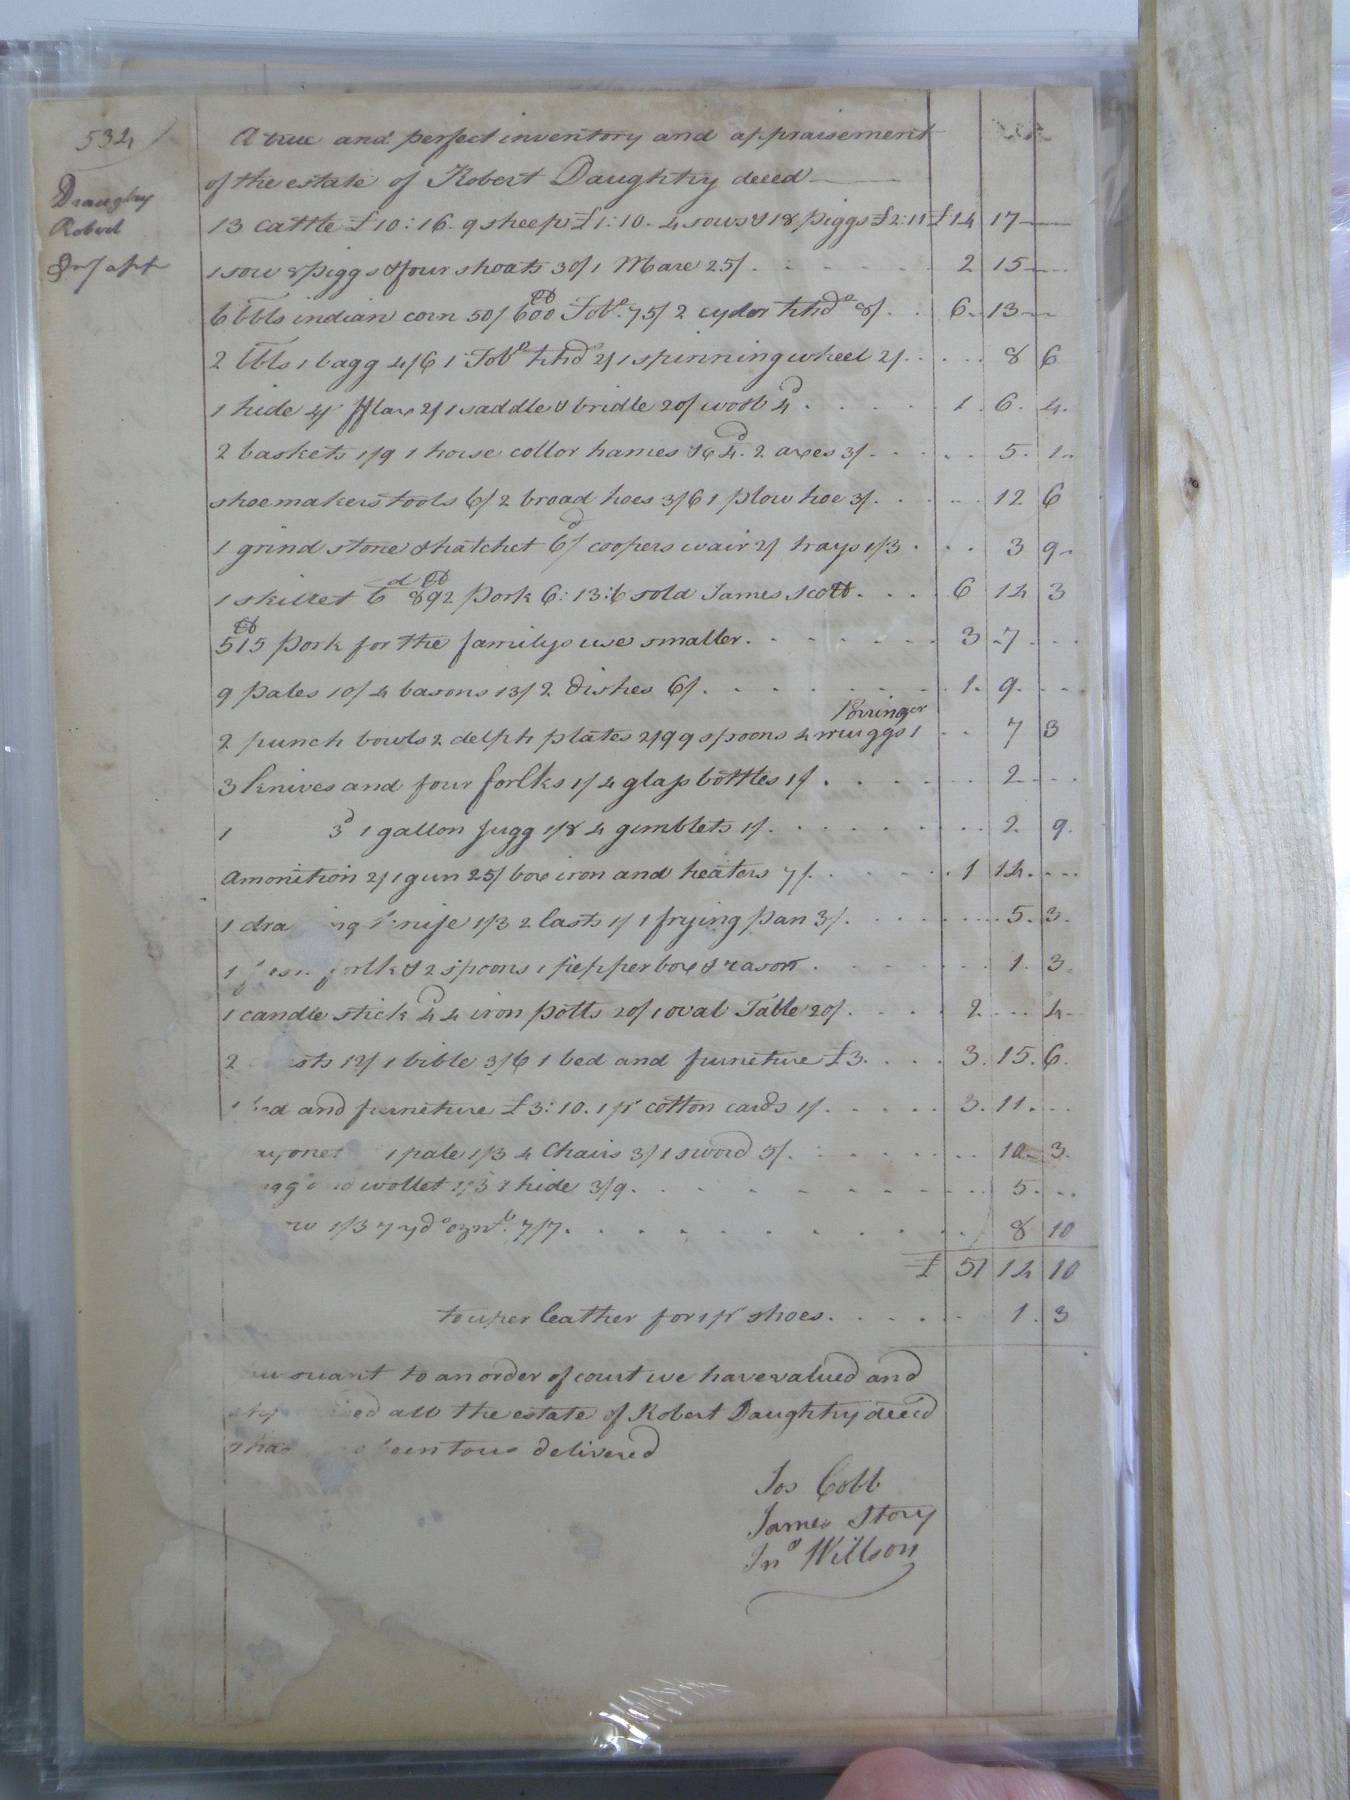 534
Daughtry
Robert
Inv/ apt
A true and perfect inventory and appraisement
of the estate of Robert Daughtry deced
13 cattle £10:16. 9 sheep £1:10. 4 sows & 18 piggs £2:11 £ 14 17 —
1 sow 8 piggs & four shoats 30/ 1 Mare 25/ . 2 15 —
6 bbls indian corn 50/ 600 lb Tobo. 75/ 2 cyder hhds 8/ . 6 13 —
2 bbls 1 bagg 4/6 1 Tobo hhd 2/ 1 spinning wheel 2/ . 8 6
1 hide 4/ fflax 2/ 1 saddle & bridle 20/ wool 4d . 1 6 4
2 baskets 1/9 1 horse collor hames &c 4d. 2 axes 3/ . 5 1
shoemakers tools 6/ 2 broad hoes 3/6 1 plow hoe 3/ . 12 6
1 grind stone & hatchet 6d/ coopers wair 2/ trays 1/3 . 3 9
1 skillet 6d 892 lb pork 6:13:6 sold James Scott . 6 14 3
515 lb pork for the familys use smaller . 3 7
9 pales 10/ 4 basons 13/ 2 dishes 6/ . 1 9
2 punch bowls 2 delph plates 2/9 9 spoons 4 muggs 1 Porringer 7 3
3 knives and four forlks 1/ 4 glass bottles 1/ . 2
1 3d 1 gallon jugg 1/8 4 gimblets 1/ . 2 9
Amonition 2/ 1 gun 25/ box iron and heaters 7/ . 1 14
1 dra ing knife 1/3 2 lasts 1/ 1 frying pan 3/ . 5 3
1 flesh forlk & 2 spoons 1 pepper box & rasor . 1 3
1 candle stick 4d 4 iron potts 20/ 1 oval Table 20/ . 2 4
2 sts 12/ 1 bible 3/6 1 bed and furneture £3 . 3 15 6
1 bed and furneture £3:10. 1 pr cotton cards 1/ . 3 11
ayonet 1 pale 1/3 4 Chairs 3/ 1 sword 5/ . 10 3
wollet 1/3 1 hide 3/9 . 5
1/3 7 yds oznb. 7/7 . 8 10
£ 51 14 10
to uper leather for 1 pr shoes . 1 3
ursuant to an order of court we have valued and
ed all the estate of Robert Daughtry deced
that been to us delivered
Jos Cobb
James Story
Jno Willson